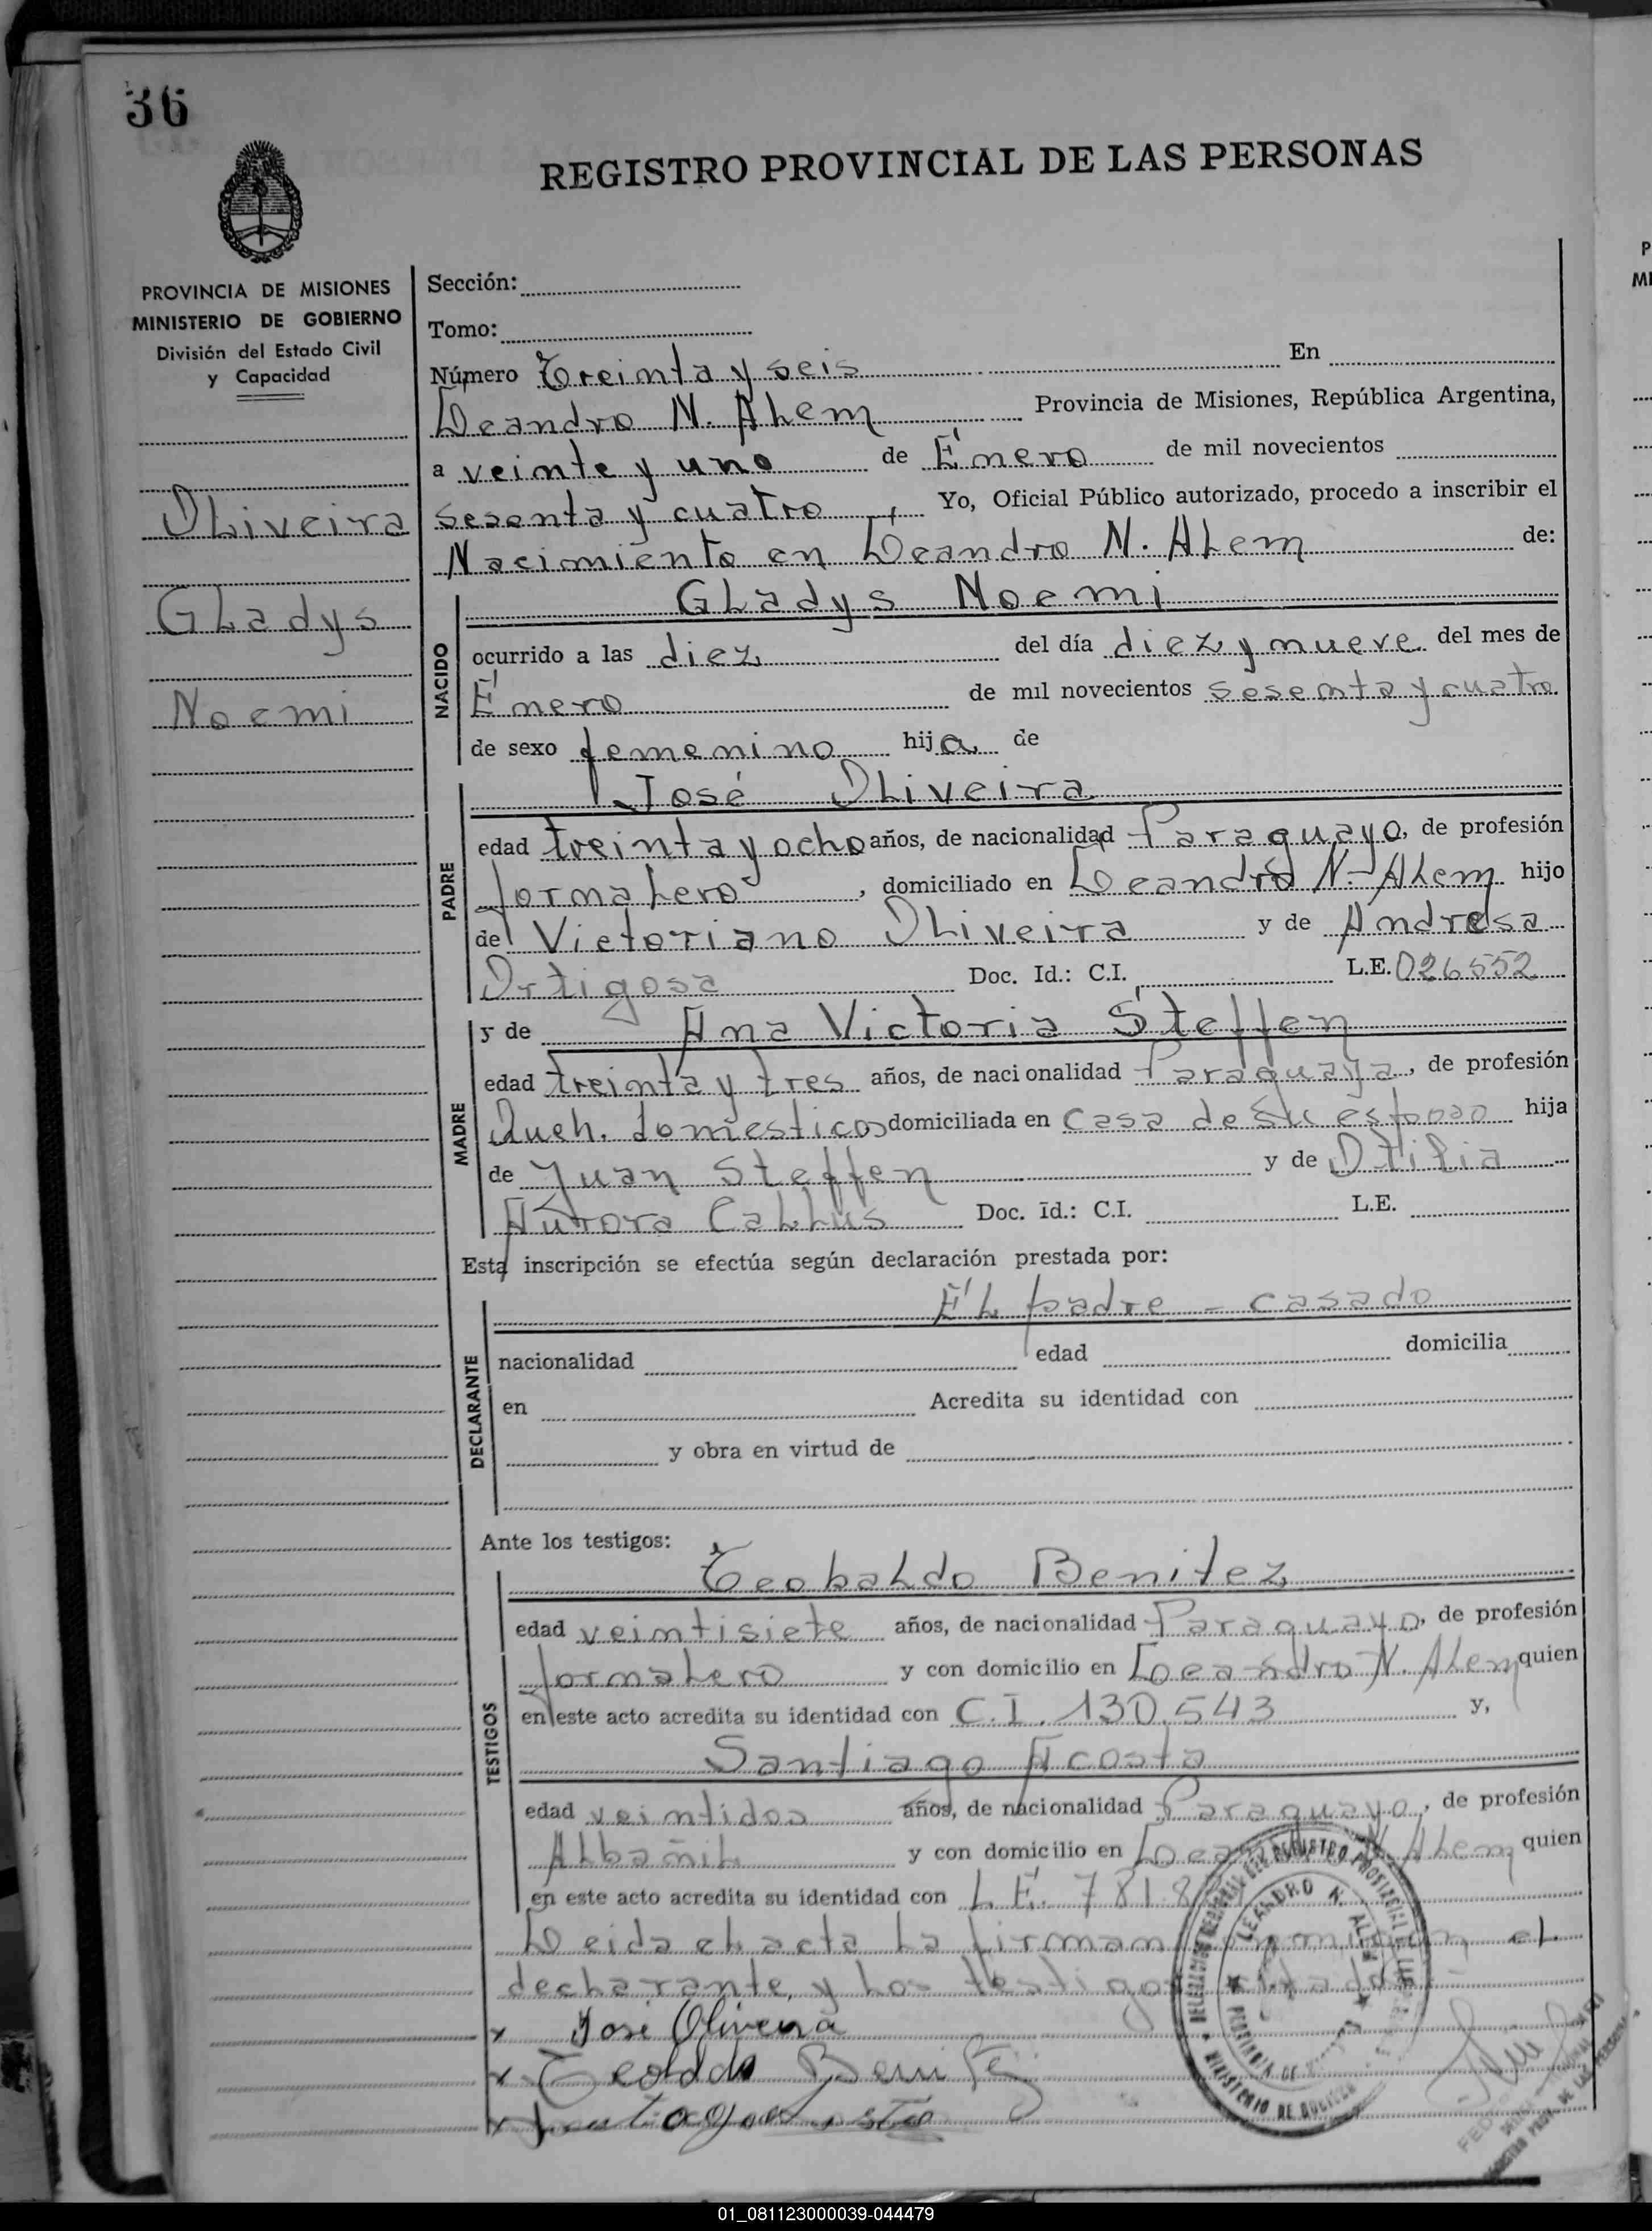 36
REGISTRO PROVINCIAL DE LAS PERSONAS
PROVINCIA DE MISIONES
MINISTERIO DE GOBIERNO
División del Estado Civil
y Capacidad
Oliveira
Gladys
Noemi
Sección:
Tomo:
Número Treinta y seis En
Leandro N. Alem Provincia de Misiones, República Argentina,
a veinte y uno de Enero de mil novecientos
sesenta y cuatro, Yo, Oficial Público autorizado, procedo a inscribir el
Nacimiento en Leandro N. Alem de:
NACIDO
Gladys Noemi
ocurrido a las diez del día diez y nueve del mes de
Enero de mil novecientos sesenta y cuatro
de sexo femenino hija de
PADRE
José Oliveira
edad treinta y ocho años, de nacionalidad Paraguayo, de profesión
Jornalero, domiciliado en Leandro N. Alem hijo
de Victoriano Oliveira y de Andresa
Ortigosa Doc. Id.: C.I. L.E. 026552
MADRE
y de Ana Victoria Steffen
edad treinta y tres años, de nacionalidad Paraguaya, de profesión
Queh. domesticos domiciliada en casa de su esposo hija
de Juan Steffen y de Otilia
Aurora Callus Doc. Id.: C.I. L.E.
Esta inscripción se efectúa según declaración prestada por:
DECLARANTE
El padre - casado
nacionalidad edad domicilia
en Acredita su identidad con
y obra en virtud de
Ante los testigos:
TESTIGOS
Teobaldo Benitez
edad veintisiete años, de nacionalidad Paraguayo, de profesión
Jornalero y con domicilio en Leandro N. Alem quien
en este acto acredita su identidad con C.I. 130.543 y,
Santiago Acosta
edad veintidos años, de nacionalidad Paraguayo, de profesión
Albañil y con domicilio en N. Alem quien
en este acto acredita su identidad con L.E. 7818
Leida el acta la firman el
declarante, y los testigos
x José Oliveira
x Benitez
x
LEANDRO N. ALEM
MINISTERIO DE
01_081123000039-044479